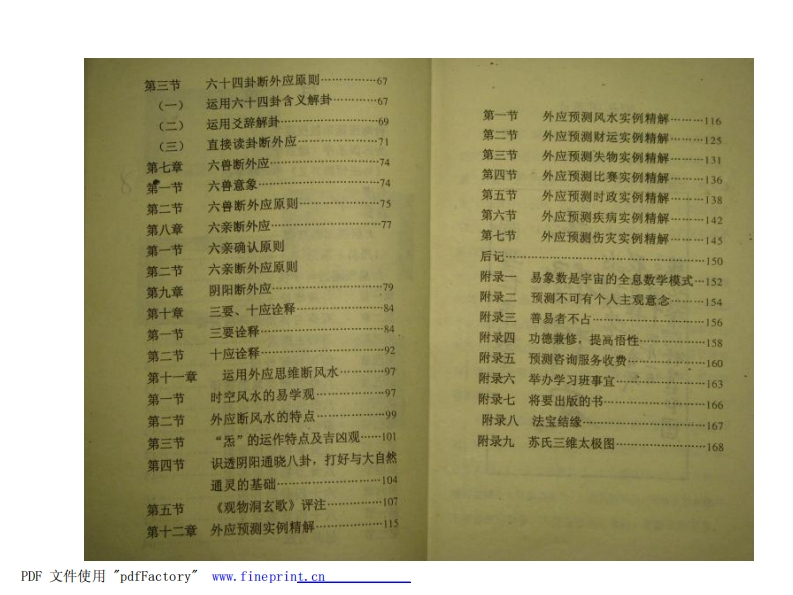 第三节 六十四卦断外应原则……………67
(一) 运用六十四卦含义解卦…………67
(二) 运用爻辞解卦……………………69
(三) 直接读卦断外应…………………71
第七章 六兽断外应………………………74
第一节 六兽意象…………………………74
第二节 六兽断外应原则…………………75
第八章 六亲断外应………………………77
第一节 六亲确认原则
第二节 六亲断外应原则
第九章 阴阳断外应………………………79
第十章 三要、十应诠释…………………84
第一节 三要诠释…………………………84
第二节 十应诠释…………………………92
第十一章 运用外应思维断风水…………97
第一节 时空风水的易学观………………97
第二节 外应断风水的特点………………99
第三节 “炁”的运作特点及吉凶观……101
第四节 识透阴阳通晓八卦，打好与大自然
通灵的基础………………………104
第五节 《观物洞玄歌》评注……………107
第十二章 外应预测实例精解……………115
第一节 外应预测风水实例精解………116
第二节 外应预测财运实例精解………125
第三节 外应预测失物实例精解………131
第四节 外应预测比赛实例精解………136
第五节 外应预测时政实例精解………138
第六节 外应预测疾病实例精解………142
第七节 外应预测伤灾实例精解………145
后记……………………………………150
附录一 易象数是宇宙的全息数学模式…152
附录二 预测不可有个人主观意念………154
附录三 善易者不占……………………156
附录四 功德兼修，提高悟性……………158
附录五 预测咨询服务收费………………160
附录六 举办学习班事宜…………………163
附录七 将要出版的书……………………166
附录八 法宝结缘…………………………167
附录九 苏氏三维太极图…………………168
PDF 文件使用 "pdfFactory" www.fineprint.cn